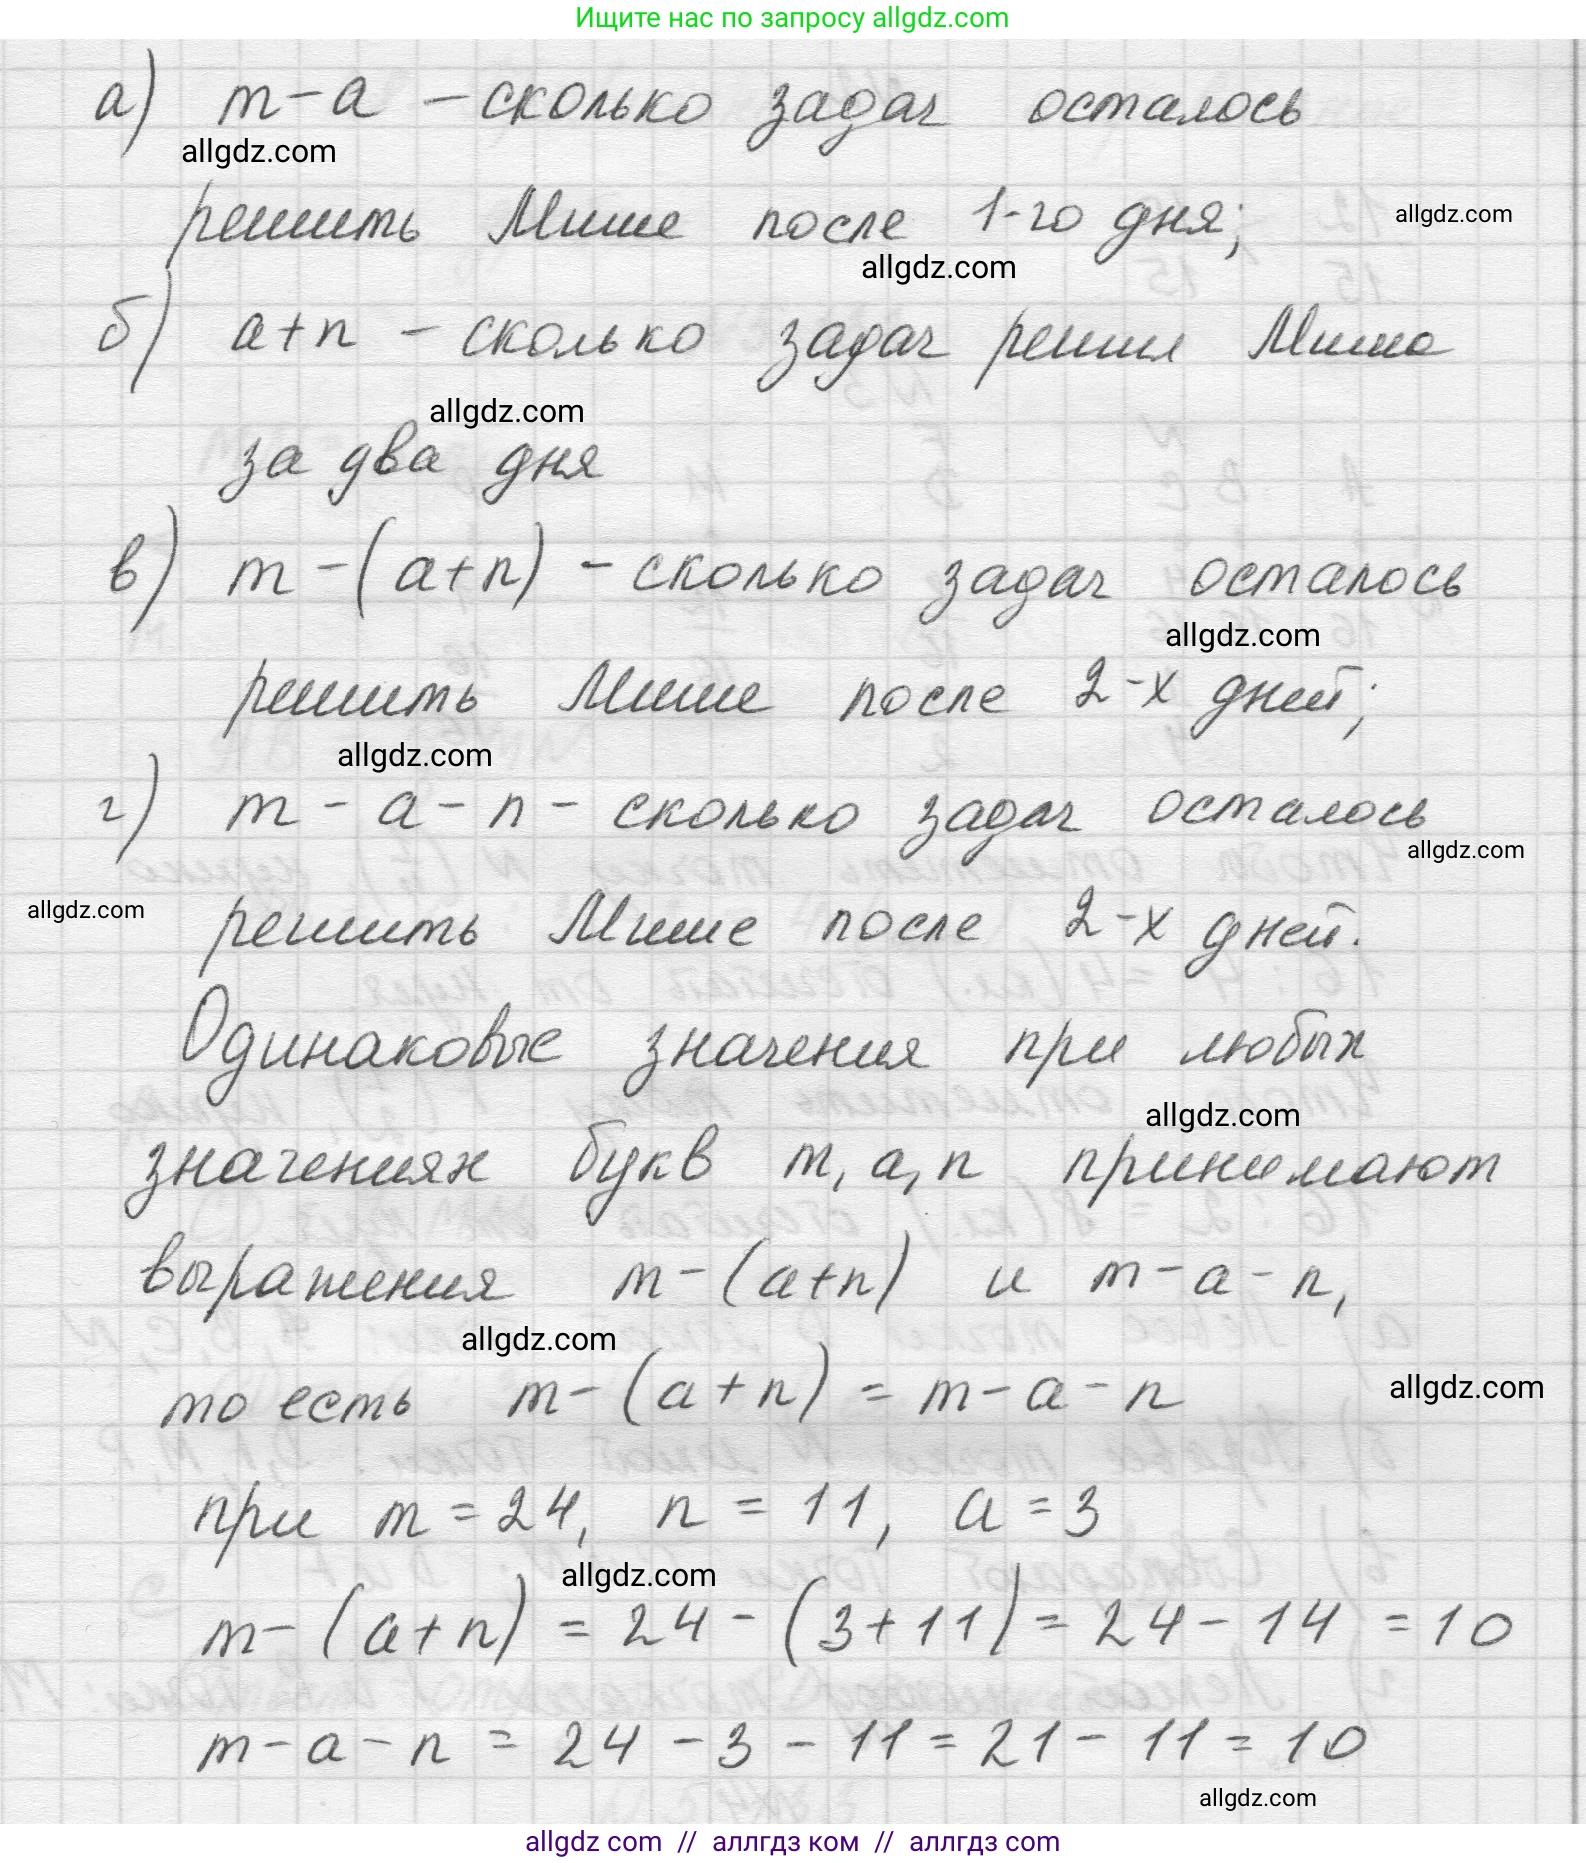 Ищите нас по запросу allgdz.com
а) m - a - сколько задач осталось
allgdz.com
решить Мише после 1-го дня;
allgdz.com
allgdz.com
б) a+n - сколько задач решил Миша
allgdz.com
за два дня
в) m - (a+n) - сколько задач осталось
allgdz.com
решить Мише после 2-х дней;
allgdz.com
г) m - a - n - сколько задач осталось
allgdz.com
allgdz.com
решить Мише после 2-х дней.
Одинаковые значения при любых
allgdz.com
значениях букв m, a, n принимают
выражения m - (a+n) и m - a - n,
allgdz.com
то есть m - (a + n) = m - a - n
allgdz.com
при m = 24, n = 11, a = 3
allgdz.com
m - (a + n) = 24 - (3 + 11) = 24 - 14 = 10
m - a - n = 24 - 3 - 11 = 21 - 11 = 10
allgdz.com
allgdz com // аллгдз ком // аллгдз com